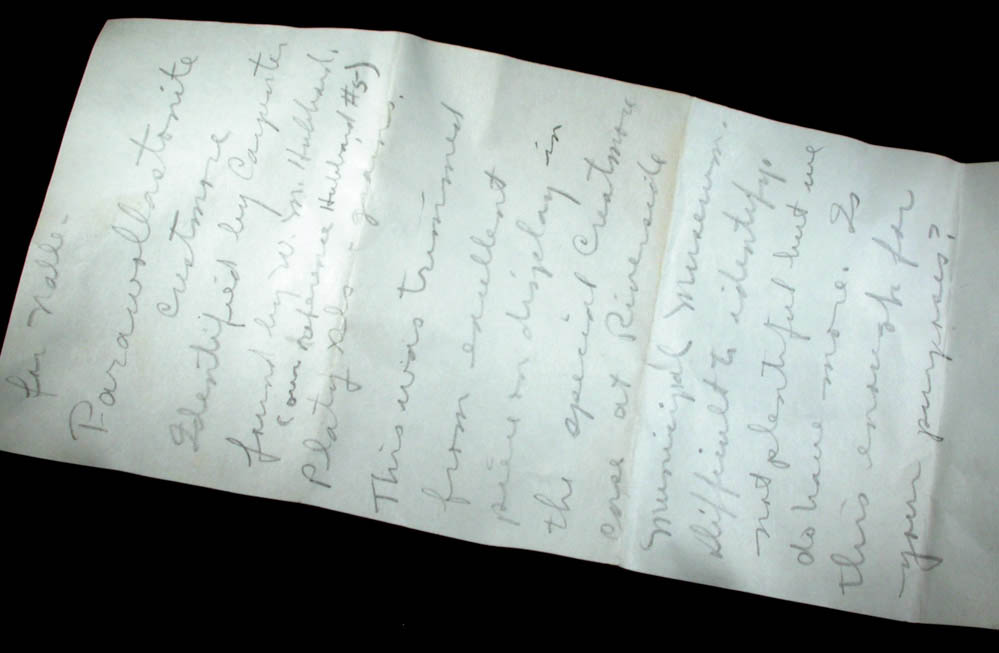 For Dale -
Parawollastonite
Crestmore
Identified by Carpenter
found by W. M. Hubbard.
(our reference Hubbard #5)
Platy xls - grains.
This was trimmed
from excellent
piece on display in
the special Crestmore
case at Riverside
Municipal Museum.
Difficult to identify.
not plentiful but we
do have more. Is
this enough for
your purposes?